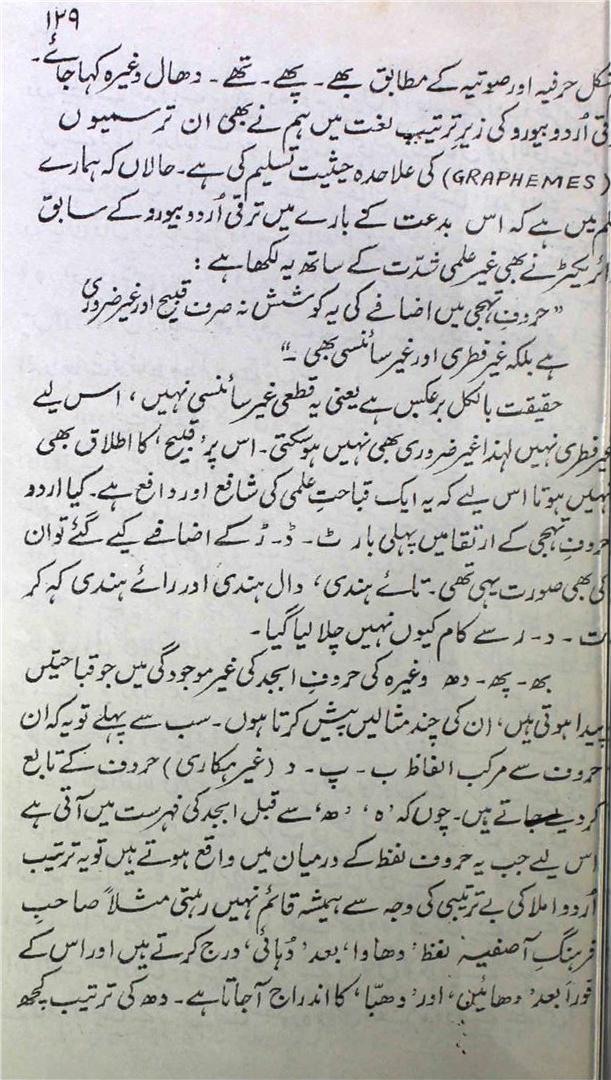 ۱۲۹
شکل حرفیہ اور صوتیہ کے مطابق بھے۔ پھے۔ تھے۔ دھال وغیرہ کہا جائے۔
اُردو بیورو کی زیرِ ترتیب لغت میں ہم نے بھی ان ترسمیوں
(GRAPHEMES) کی علاحدہ حیثیت تسلیم کی ہے۔ حالاں کہ ہمارے
میں ہے کہ اس بدعت کے بارے میں ترقی اُردو بیورو کے سابق
نے بھی غیر علمی شدّت کے ساتھ یہ لکھا ہے :
”حروفِ تہجی میں اضافے کی یہ کوشش نہ صرف قبیح اور غیر ضروری
ہے بلکہ غیر فطری اور غیر سائنسی بھی ۔“
حقیقت بالکل برعکس ہے یعنی یہ قطعی غیر سائنسی نہیں، اس لیے
غیر فطری نہیں لہٰذا غیر ضروری بھی نہیں ہو سکتی۔ اس پر ’قبیح‘ کا اطلاق بھی
نہیں ہوتا اس لیے کہ یہ ایک قباحتِ علمی کی شافع اور دافع ہے۔ کیا اردو
حروفِ تہجی کے ارتقا میں پہلی بار ٹ۔ ڈ۔ ڑ کے اضافے کیے گئے تو ان
کی بھی صورت یہی تھی۔ تائے ہندی، دال ہندی اور رائے ہندی کہہ کر
ت۔ د۔ ر سے کام کیوں نہیں چلا لیا گیا۔
بھ۔ پھ۔ دھ وغیرہ کی حروفِ ابجد کی غیر موجودگی میں جو قباحتیں
پیدا ہوتی ہیں، ان کی چند مثالیں پیش کرتا ہوں۔ سب سے پہلے تو یہ کہ ان
حروف سے مرکب الفاظ ب۔ پ۔ د (غیر ہکاری) حروف کے تابع
کر دیے جاتے ہیں۔ چوں کہ ’ہ‘، ’ھ‘ سے قبل ابجد کی فہرست میں آتی ہے
اس لیے جب یہ حروف لفظ کے درمیان میں واقع ہوتے ہیں تو یہ ترتیب
اُردو املا کی بے ترتیبی کی وجہ سے ہمیشہ قائم نہیں رہتی مثلاً صاحبِ
فرہنگِ آصفیہ لفظ ’دھاوا‘، بعد ’دُہائی‘، درج کرتے ہیں اور اس کے
فوراً بعد ’دھائیں‘، اور ’دھبّا‘ کا اندراج آ جاتا ہے۔ دھ کی ترتیب کچھ